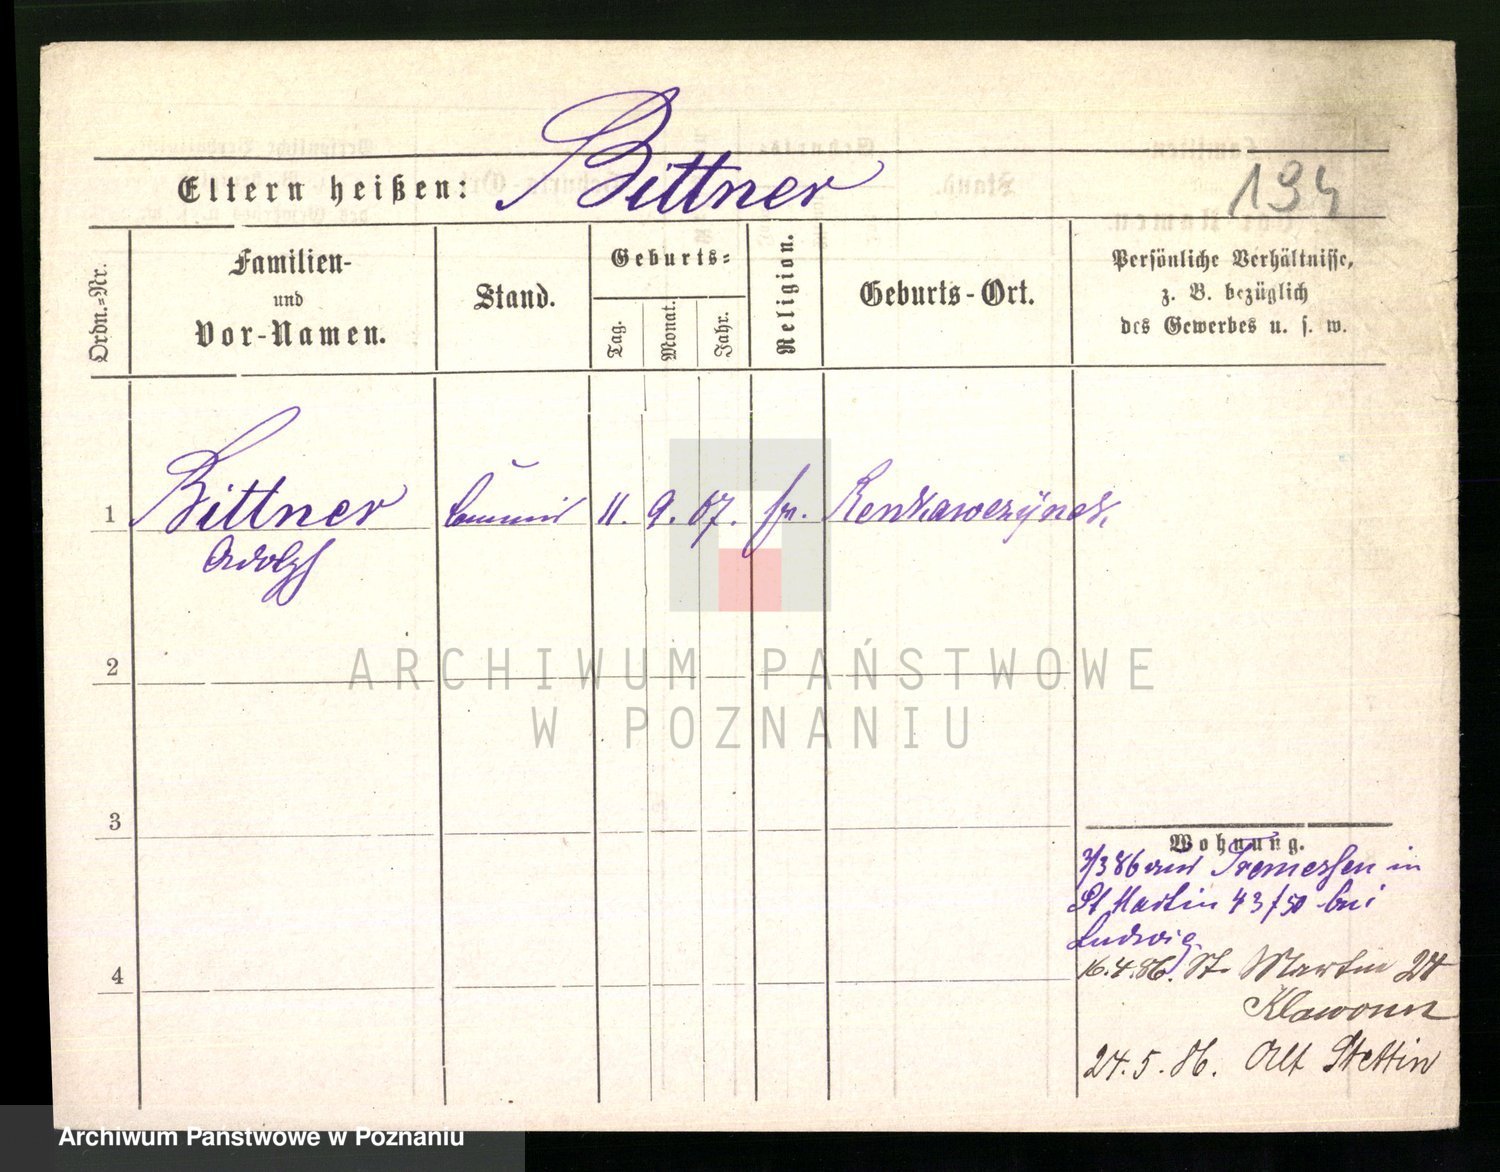 Eltern heißen: Bittner
194
Ordn.-Nr.
Familien-
und
Vor-Namen.
Stand.
Geburts-
Tag.
Monat.
Jahr.
Religion.
Geburts-Ort.
Persönliche Verhältnisse,
z. B. bezüglich
des Gewerbes u. s. w.
1 Bittner Commis 11. 9. 67.
Adolph
2
3
4
Wohnung.
86 aus Tremessen in
St Martin 43/50 bei
Ludwig
16.4.86. St. Martin 24
Klawonn
24.5.86. Alt Stettin
ARCHIWUM PAŃSTWOWE
W POZNANIU
Archiwum Państwowe w Poznaniu